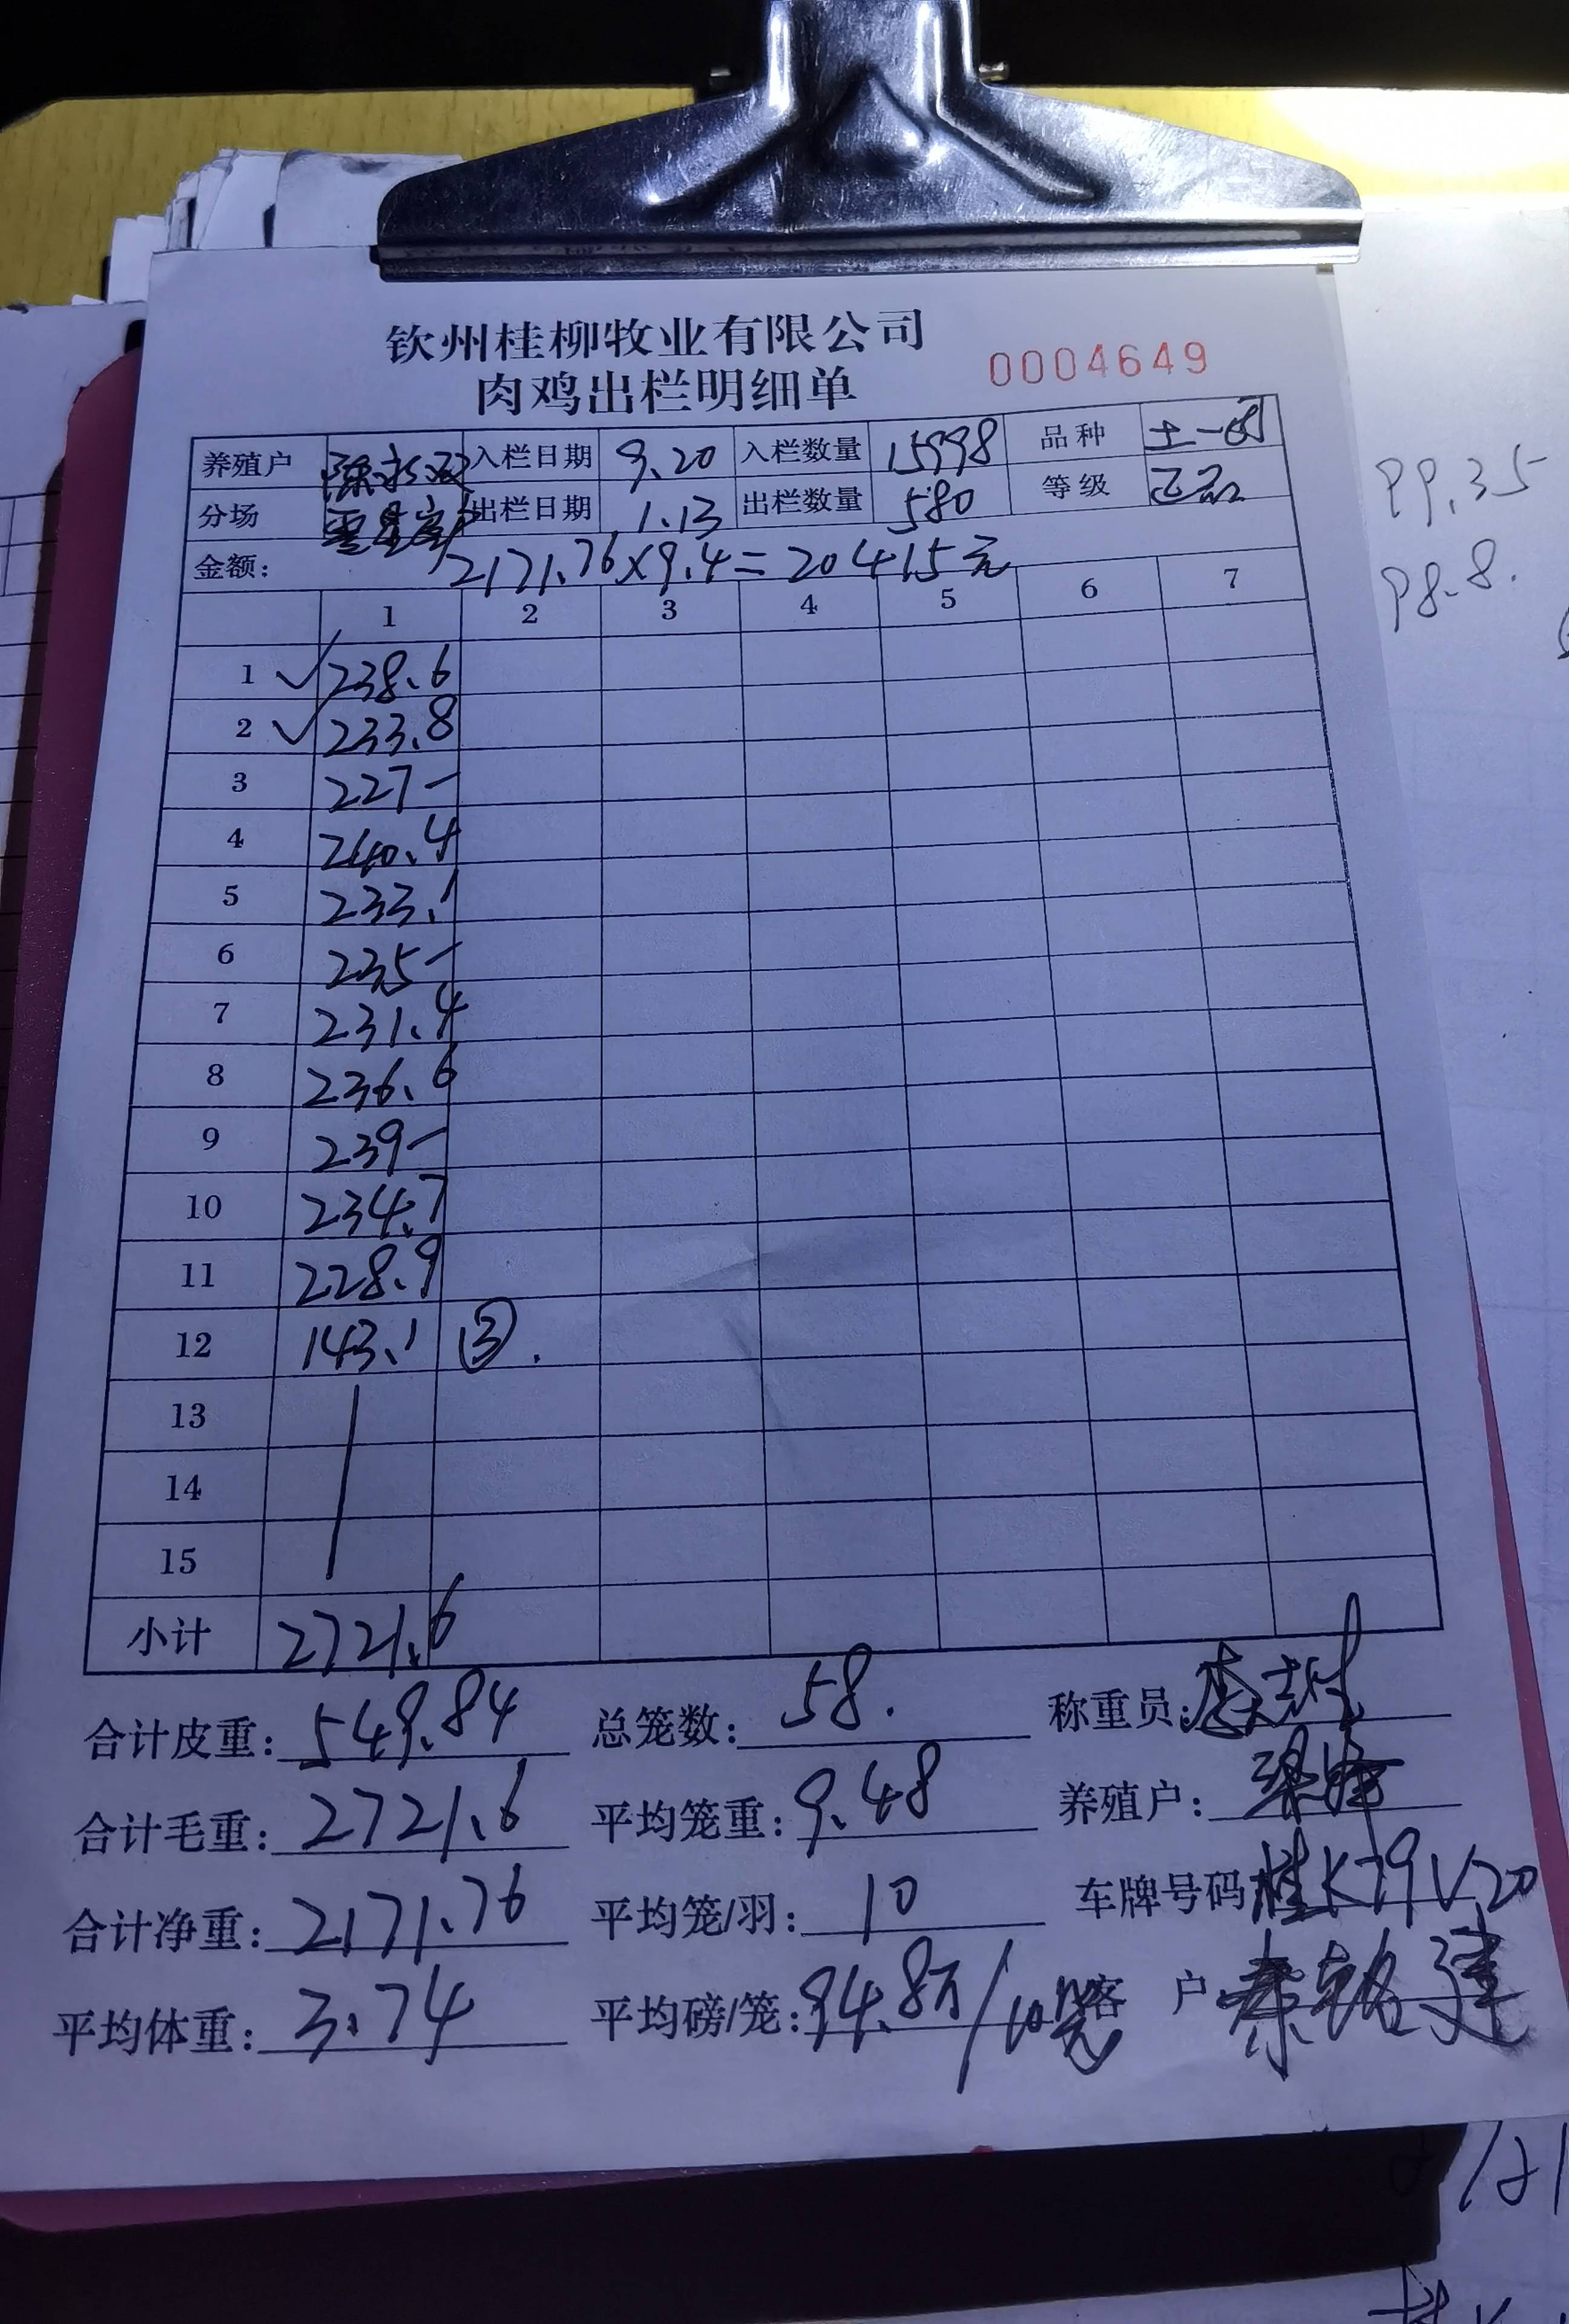 钦州桂柳牧业有限公司
肉鸡出栏明细单 0004649
养殖户 入栏日期 9.20 入栏数量 15998 品种 土一
分场 出栏日期 1.13 出栏数量 580 等级 正品
金额: 2171.76×9.4=20415元
1 2 3 4 5 6 7
1 238.6
2 233.8
3 227-
4 240.4
5 233.1
6 235-
7 231.4
8 236.6
9 239-
10 234.7
11 228.9
12 143.1 ③.
13
14
15
小计 2721.6
合计皮重: 549.84 总笼数: 58. 称重员:
合计毛重: 2721.6 平均笼重: 9.48 养殖户:
合计净重: 2171.76 平均笼/羽: 10 车牌号码 桂K79V20
平均体重: 3.74 平均磅/笼: 94.8斤/10笼 客户 秦铭建
99.35
98.8.